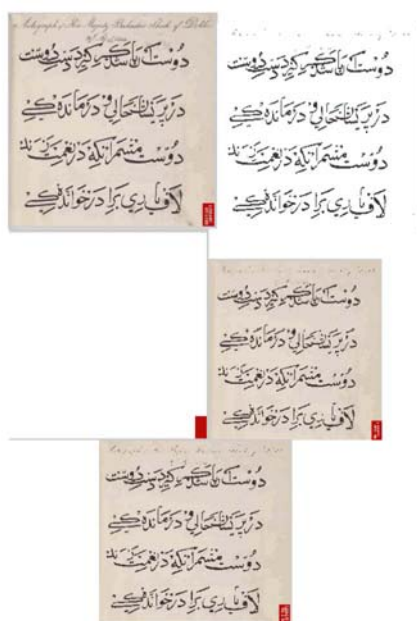 Autograph of His Majesty Bahadur Shah of Dehli
دوست آن باشد که گیرد دست دوست
در پریشان حالی و درمانده کی
دوست مشمر آنکه در نعمت زند
لاف یاری برادر خواندکی
دوست آن باشد که گیرد دست دوست
در پریشان حالی و درمانده کی
دوست مشمر آنکه در نعمت زند
لاف یاری برادر خواندکی
دوست آن باشد که گیرد دست دوست
در پریشان حالی و درمانده کی
دوست مشمر آنکه در نعمت زند
لاف یاری برادر خواندکی
دوست آن باشد که گیرد دست دوست
در پریشان حالی و درمانده کی
دوست مشمر آنکه در نعمت زند
لاف یاری برادر خواندکی